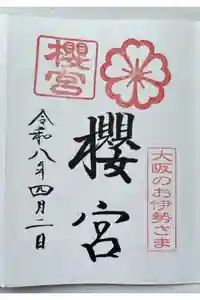 櫻宮
大阪のお伊勢さま
櫻宮
令和八年四月二日